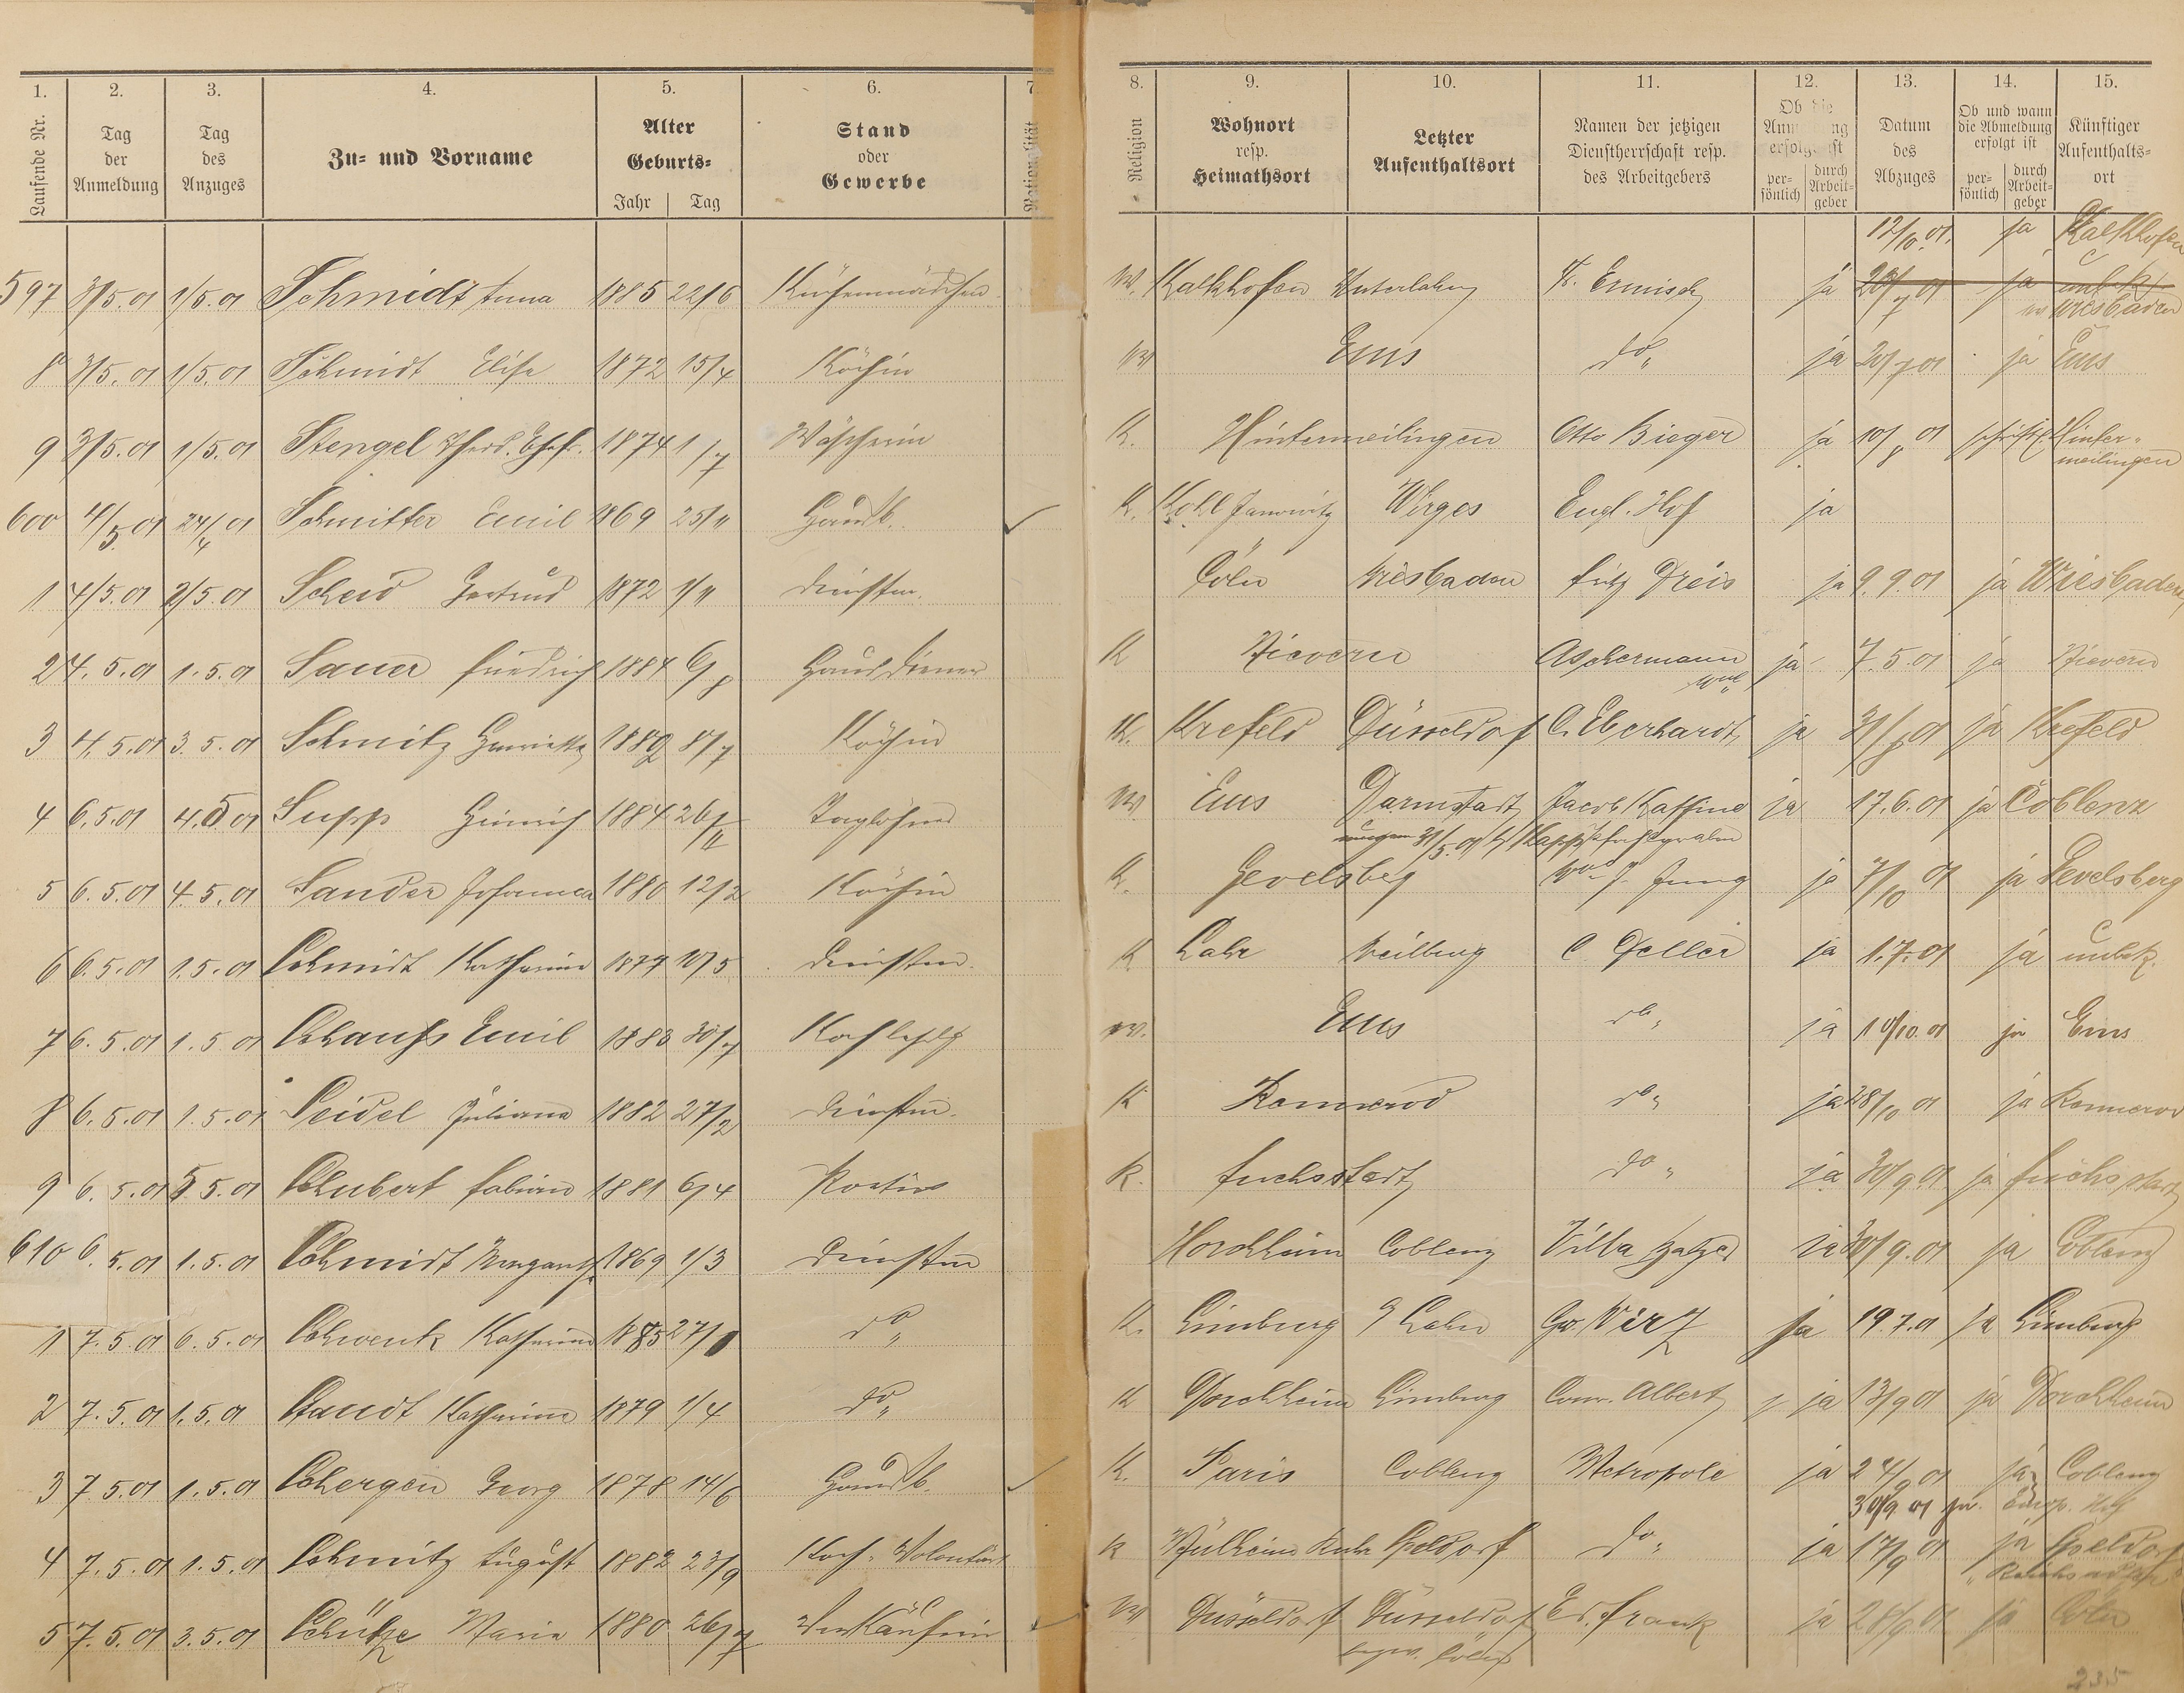 1. 2. 3. 4. 5. 6. 7
Laufende Nr. Tag der Anmeldung Tag des Anzuges Zu= und Vorname Alter Geburts= Jahr Tag Stand oder Gewerbe Nationalität
8. 9. 10. 11. 12. 13. 14. 15.
Religion Wohnort resp. Heimathsort Letzter Aufenthaltsort Namen der jetzigen Dienstherrschaft resp. des Arbeitgebers Ob die Anmeldung erfolgt ist per=sönlich durch Arbeit=geber Datum des Abzuges Ob und wann die Abmeldung erfolgt ist per=sönlich durch Arbeit=geber Künftiger Aufenthalts=ort
12/10.01. ja Kalkhofen
597 3/5.01 1/5.01 Schmidt Anna 1885 22/6 Küchenmädchen W. Kalkhofen Unterlahn Fr. Ermisch ja 20/7 01 ja unbek.
Wiesbaden
8 3/5.01 1/5.01 Schmidt Elise 1872 15/4 Köchin W Ems do " ja 20/7 01 ja Ems
9 3/5.01 1/5.01 Stengel Ferd. Ehefr. 1874 1/7 Wäscherin K. Hintermeilingen Otto Bieger ja 10/8 01 schriftl. Hinter-
meilingen
600 4/5.01 24/4 01 Schmitter Emil 1869 25/11 Hausb. K. Kohl Janowitz Wirges Engl. Hof ja
1 4/5.01 2/5.01 Scheid Gertrud 1872 1/11 Dienstm. Cöln Wiesbaden Fritz Dreis ja 9.9.01 ja Wiesbaden
2 4.5.01 1.5.01 Sauer Friedrich 1884 6/8 Hausdiener K Fievern Aschermann Wwe ja 7.5.01 ja Fievern
3 4.5.01 3.5.01 Schmitz Henriette 1880 8/7 Köchin K. Krefeld Düsseldorf C. Eberhardt ja 31/7 01 ja Krefeld
4 6.5.01 4.5 01 Supp Heinrich 1884 26/11 Taglöhner W Ems Darmstadt Jacob Kaffine ja 17.6.01 ja Coblenz
31/5.01
5 6.5.01 4.5.01 Sander Johanna 1880 12/2 Köchin K. Gevelsberg Wwe J. Jung ja 7/10 01 ja Gevelsberg
6 6.5.01 1.5.01 Schmidt Katharina 1877 10/5 Dienstm. K Lahr Weilburg C. Deller ja 1.7.01 ja unbek.
7 6.5.01 1.5 01 Schauß Emil 1883 30/7 Kochlehrlg W. Ems do " ja 10/10.01 ja Ems
8 6.5.01 1.5.01 Seidel Juliana 1882 27/2 Dienstm. K Rennerod do " ja 28/10 01 ja Rennerod
9 6.5.01 5 5.01 Schubert Fabian 1881 6/4 Portier K. Fuchsstadt do " ja 30/9 01 ja Fuchsstadt
610 6.5.01 1.5.01 Schmidt Margareth. 1869 1/3 Dienstm Horchheim Coblenz Villa ja 30/9.01 ja Coblenz
1 7.5.01 6.5.01 Schwenk Katharina 1885 27/1 do " K. Limburg a/ Lahn Gw. Wirz ja 19.7.01 ja Limburg
2 7.5.01 1.5.01 Staudt Katharina 1879 1/4 do " K Dorchheim Limburg Conr. Albert ja 13/9 01 ja Dorchheim
3 7.5.01 1.5.01 Schergen Georg 1878 14/6 Hausb. K. Paris Coblenz Metropole ja 24/9 01 ja Coblenz
30/9 01 ja. Europ. Hof
4 7.5.01 1.5.01 Schmitz August 1882 23/9 Koch-Volontär K Mülheim Ruhr Speldorf do " ja 17/9 01 ja Speldorf
5 7.5.01 3.5.01 Schütze Maria 1880 26/7 Verkäuferin W Düsseldorf Düsseldorf Ed. Frank ja 28/9 01 ja Cöln
bezw. Cöln
235